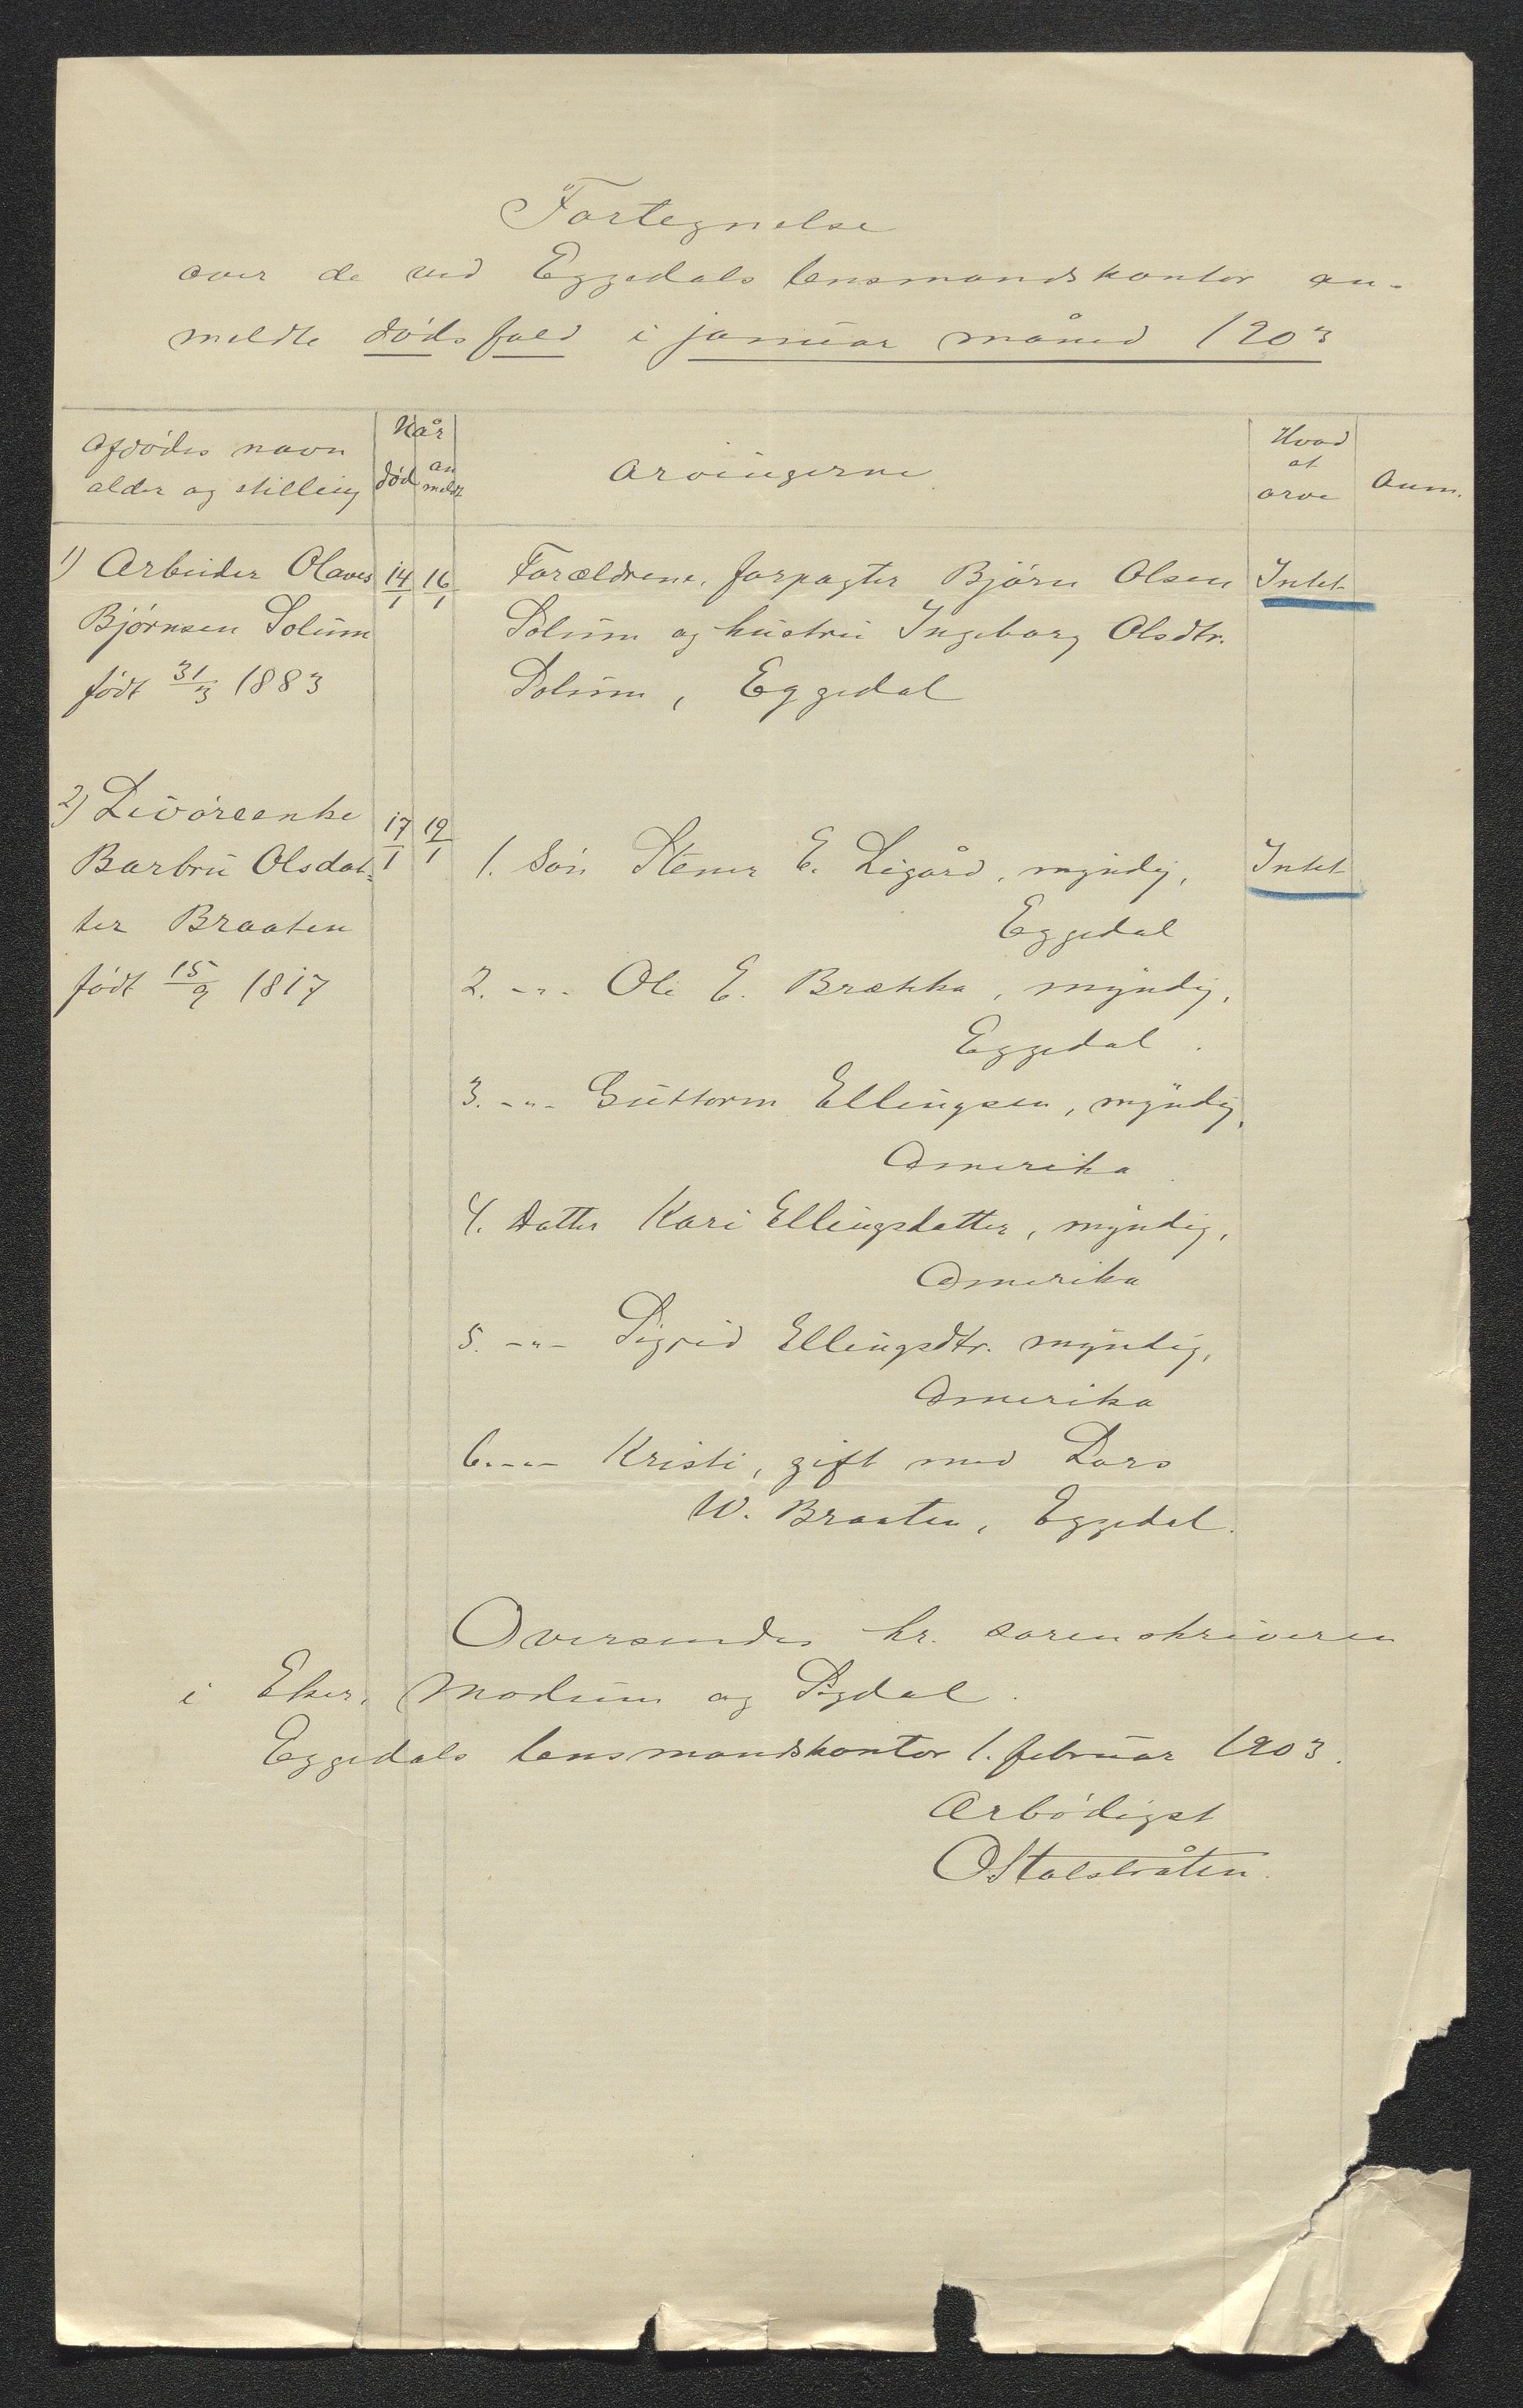 Fortegnelse
over de ved Eggedals lensmandskontor an-
meldte dødsfald i januar måned 1903
Afdødes navn
alder og stilling
Når
død
an
meldt
Arvingerne
Hvad
at
arve
Anm.
1) Arbeider Olaves
Bjørnsen Solum
født 31/3 1883
14/1
16/1
Forældrene, forpagter Bjørn Olsen
Solum og hustru Ingeborg Olsdtr.
Solum, Eggedal
Intet
2) Livøreenke
Barbru Olsdat=
ter Braaten
født 15/9 1817
17/1
19/1
1. Søn Stener E. Ligård, myndig,
Eggedal
2. -"- Ole E. Brækka, myndig,
Eggedal.
3. -"- Guttorm Ellingsen, myndig,
Amerika
4. Datter Kari Ellingsdatter, myndig,
Amerika
5. -"- Sigrid Ellingsdtr. myndig,
Amerika
6. -"- Kristi, gift med Lars
W. Braaten, Eggedal.
Intet
Oversendes hr. sorenskriveren
i Eker, Modum og Sigdal.
Eggedals lensmandskontor 1. februar 1903.
Ærbødigst